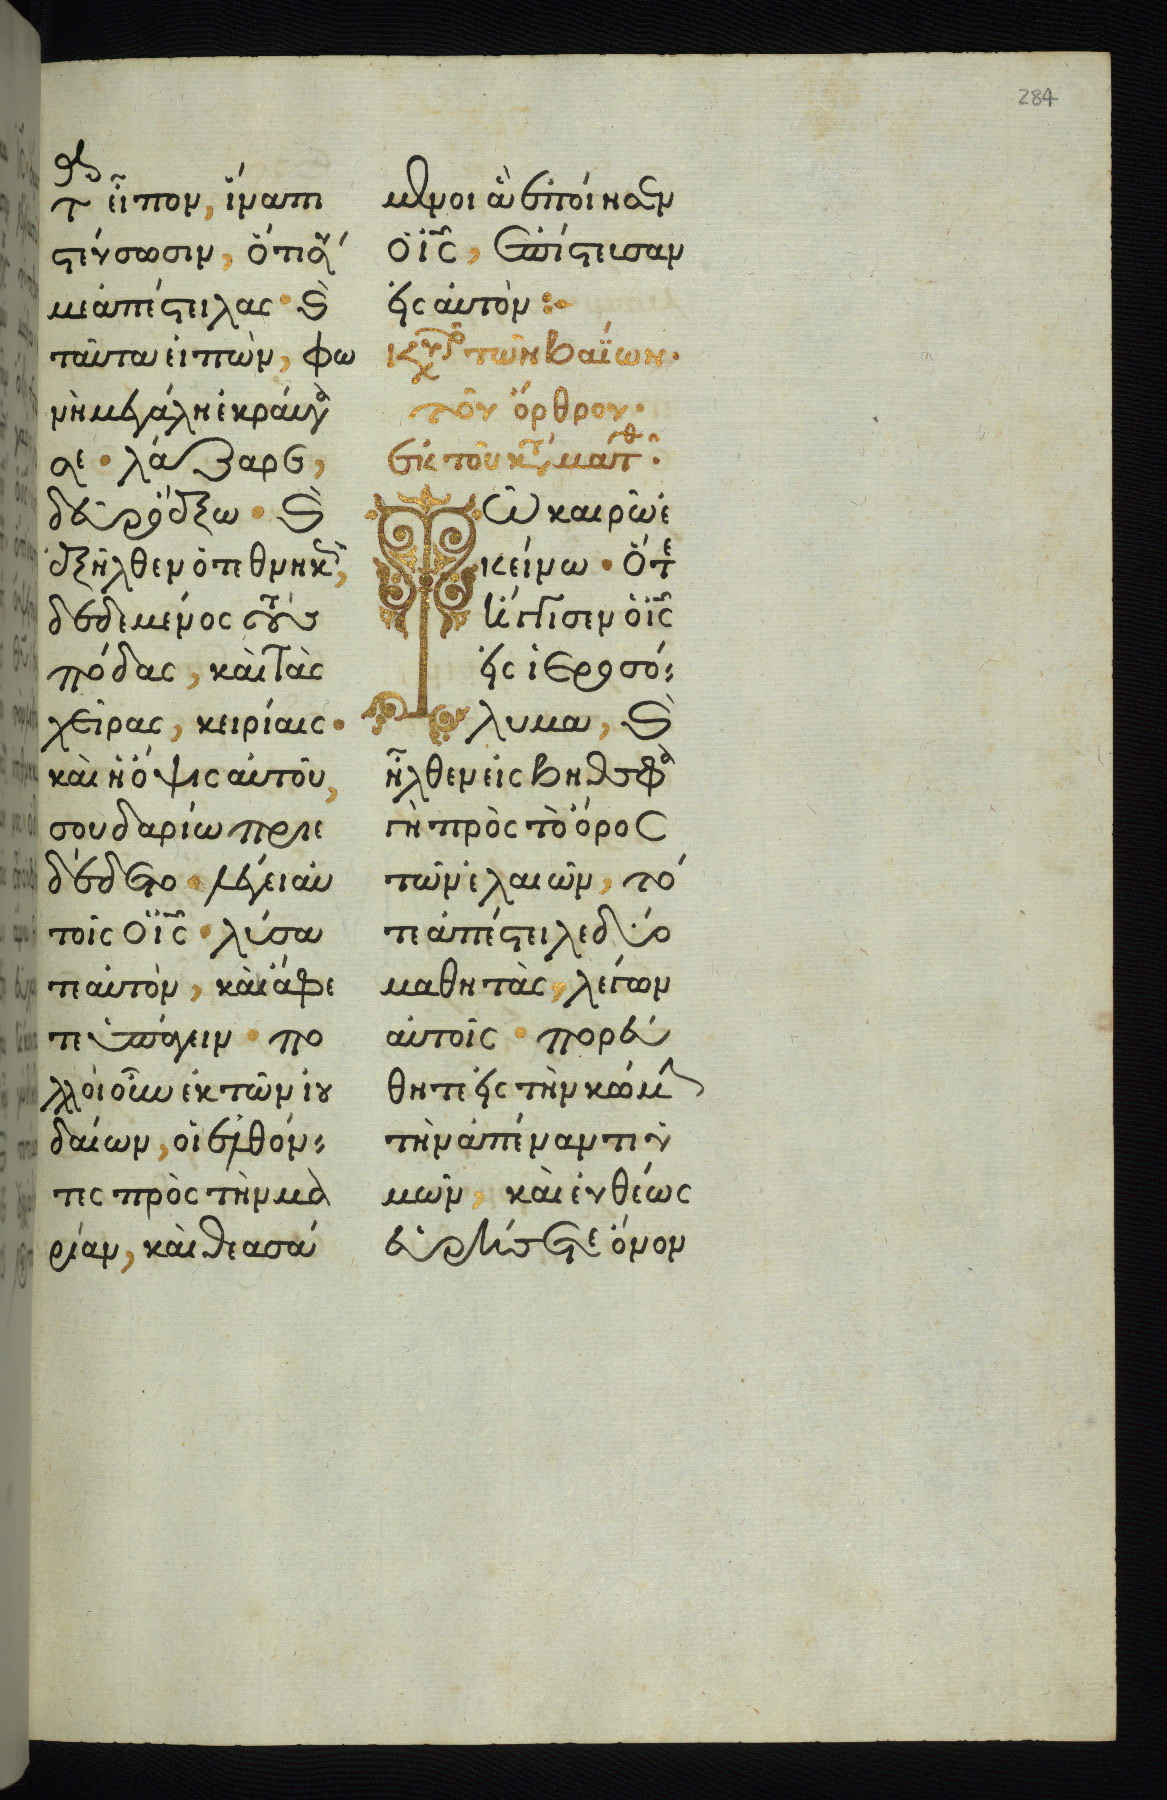 284
τα εἶπον, ἵνα πι
στεύσωσιν, ὅτι σύ
με ἀπέστειλας· καὶ
ταῦτα εἰπὼν, φω
νῆ μεγάλη ἐκραύγα
σε· λάζαρε,
δεῦρο ἔξω· καὶ
ἐξῆλθεν ὁ τεθνηκὼς,
δεδεμένος τοὺς
πόδας, καὶ τὰς
χεῖρας, κειρίαις·
καὶ ἡ ὄψις αὐτοῦ,
σουδαρίω περιε
δέδετο· λέγει αὐ
τοῖς ὁ ἰς· λύσα
τε αὐτὸν, καὶ ἄφε
τε ὑπάγειν· πο
λλοὶ οὖν ἐκ τῶν ἰου
δαίων, οἱ ἐλθόν
τες πρὸς τὴν μα
ρίαν, καὶ θεασά
μενοι ἃ ἐποίησεν
ὁ ἰς, ἐπίστευσαν
εἰς αὐτόν:
κυριακῆ τῶν βαΐων.
τὸν ὄρθρον.
ἐκ τοῦ κατὰ ματθ.
Τῶ καιρῶ ἐ
κείνω· ὅτε
ἤγγισεν ὁ ἰς
εἰς ἱεροσό
λυμα, καὶ
ἦλθεν εἰς βηθσφα
γὴ πρὸς τὸ ὄρος
τῶν ἐλαιῶν, τό
τε ἀπέστειλε δύο
μαθητὰς, λέγων
αὐτοῖς· πορεύ
θητε εἰς τὴν κώμην
τὴν ἀπέναντι ὑ
μῶν, καὶ εὐθέως
εὑρήσετε ὄνον